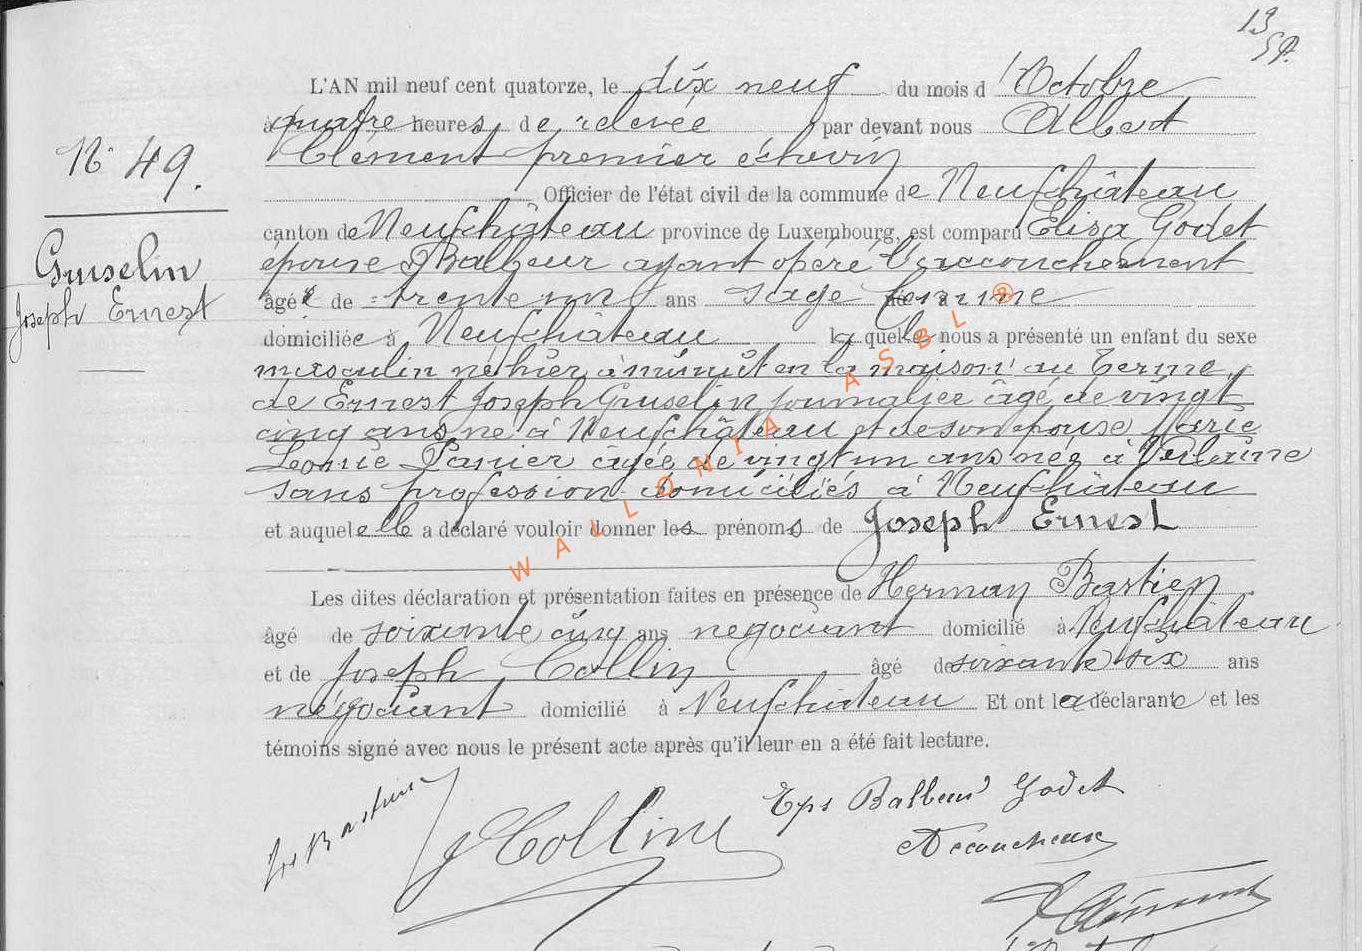 13
L'AN mil neuf cent quatorze, le dix neuf du mois d'Octobre
à quatre heures de relevée par devant nous Albert
Clément premier échevin
Officier de l'état civil de la commune de Neufchâteau
canton de Neufchâteau province de Luxembourg, est comparu Elisa Godet
épouse Balbeur ayant opéré l'accouchement
âgée de trente un ans sage femme
domiciliée à Neufchâteau laquelle nous a présenté un enfant du sexe
masculin né hier à minuit en la maison au terme
de Ernest Joseph Gruselin journalier âgé de vingt
cinq ans né à Neufchâteau et de son épouse Marie
Léonie Panier âgée de vingt un ans née à
sans profession domiciliés à Neufchâteau
et auquel elle a déclaré vouloir donner les prénoms de Joseph Ernest
Les dites déclaration et présentation faites en présence de Herman Bastien
âgé de soixante cinq ans négociant domicilié à Neufchâteau
et de Joseph Collin âgé de soixante six ans
négociant domicilié à Neufchâteau Et ont la déclarante et les
témoins signé avec nous le présent acte après qu'il leur en a été fait lecture.
N° 49.
Gruselin
Joseph Ernest
Bastien
J Collin
Eps Balbeur Godet
Accoucheuse
A Clément
WALLONIA ASBL ®